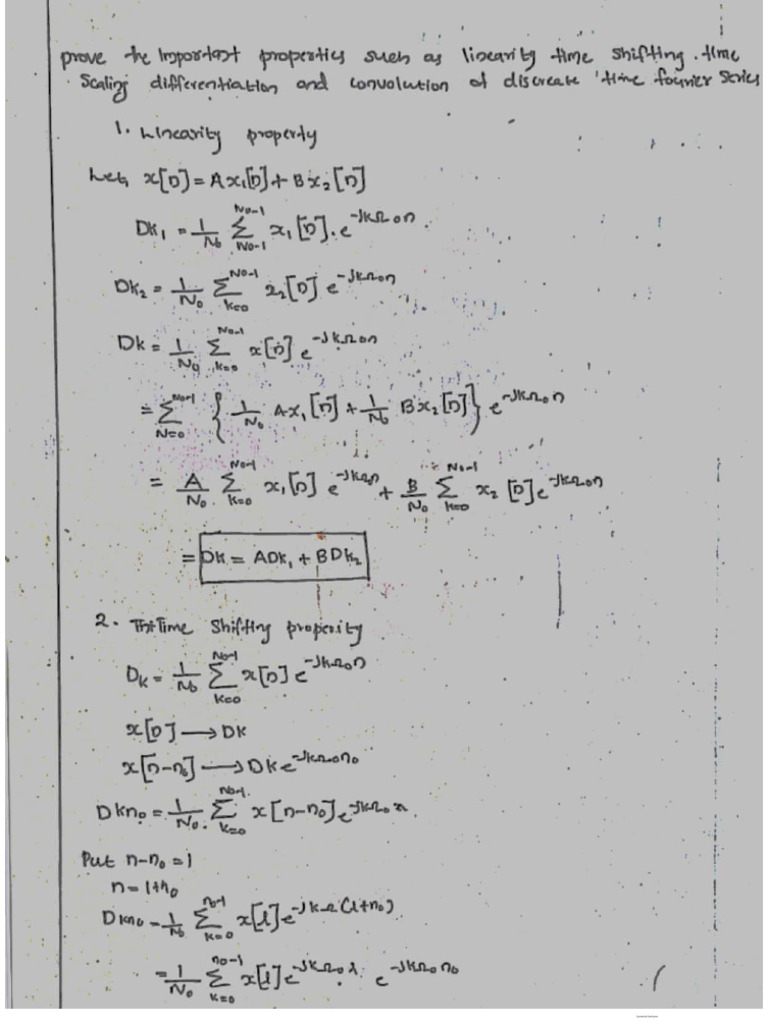 prove the Important properties such as linearity time shifting . time
scaling differentiation and convolution of discreate time fourier series
1. Linearity property
Let, x[n] = Ax₁[n] + Bx₂[n]
Dk₁ = 1/N₀ Σ_{N₀-1}^{N₀-1} x₁[n].e^{-jkΩ₀n}.
Dk₂ = 1/N₀ Σ_{k=0}^{N₀-1} x₂[n] e^{-jkΩ₀n}
Dk = 1/N₀ Σ_{k=0}^{N₀-1} x[n] e^{-jkΩ₀n}
= Σ_{N=0}^{N₀-1} { 1/N₀ Ax₁[n] + 1/N₀ Bx₂[n] } e^{-jkΩ₀n}
= A/N₀ Σ_{k=0}^{N₀-1} x₁[n] e^{-jkΩ₀n} + B/N₀ Σ_{k=0}^{N₀-1} x₂[n] e^{-jkΩ₀n}
= Dk = ADk₁ + BDk₂
2. Time Shifting property
Dk = 1/N₀ Σ_{k=0}^{N₀-1} x[n] e^{-jkΩ₀n}
x[n] → Dk
x[n-n₀] → Dk e^{-jkΩ₀n₀}
Dkn₀ = 1/N₀. Σ_{k=0}^{N₀-1} x[n-n₀] e^{-jkΩ₀n}.
Put n-n₀ = l
n = l+n₀
Dkn₀ = 1/N₀ Σ_{k=0}^{n₀-1} x[l] e^{-jkΩ(l+n₀)}
= 1/N₀ Σ_{k=0}^{n₀-1} x[l] e^{-jkΩ₀l}. e^{-jkΩ₀n₀}